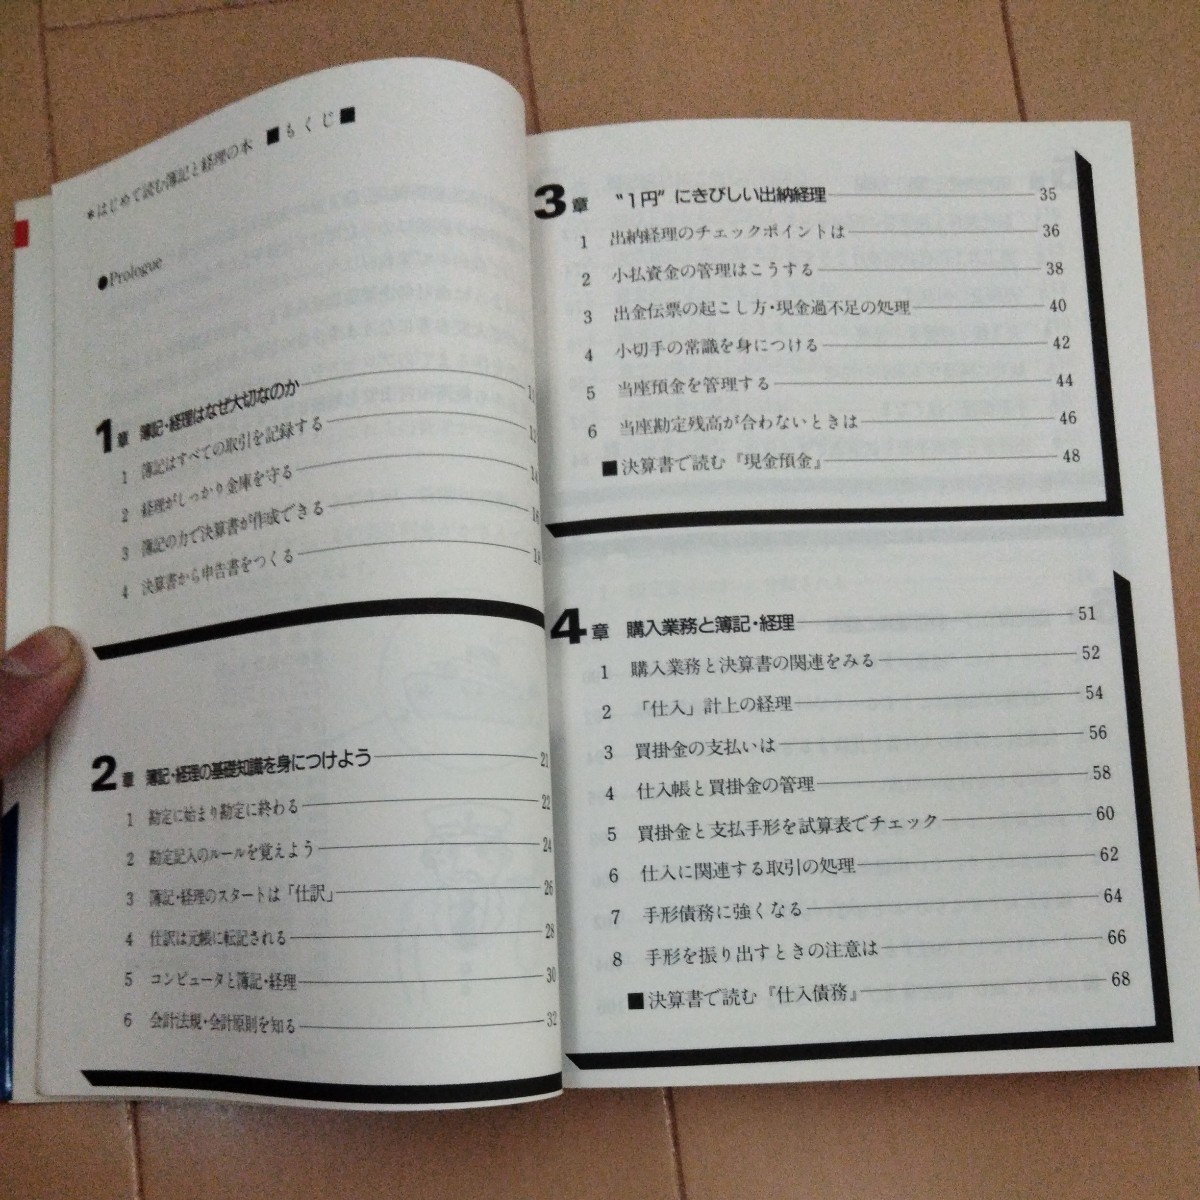 *はじめて読む簿記と経理の本 ■もくじ■
●Prologue
1章 簿記・経理はなぜ大切なのか
1 簿記はすべての取引を記録する
2 経理がしっかり金庫を守る 14
3 簿記の力で決算書が作成できる 16
4 決算書から申告書をつくる 18
2章 簿記・経理の基礎知識を身につけよう 21
1 勘定に始まり勘定に終わる 22
2 勘定記入のルールを覚えよう 24
3 簿記・経理のスタートは「仕訳」 26
4 仕訳は元帳に転記される 28
5 コンピュータと簿記・経理 30
6 会計法規・会計原則を知る 32
3章 “1円”にきびしい出納経理 35
1 出納経理のチェックポイントは 36
2 小払資金の管理はこうする 38
3 出金伝票の起こし方・現金過不足の処理 40
4 小切手の常識を身につける 42
5 当座預金を管理する 44
6 当座勘定残高が合わないときは 46
■決算書で読む『現金預金』 48
4章 購入業務と簿記・経理 51
1 購入業務と決算書の関連をみる 52
2 「仕入」計上の経理 54
3 買掛金の支払いは 56
4 仕入帳と買掛金の管理 58
5 買掛金と支払手形を試算表でチェック 60
6 仕入に関連する取引の処理 62
7 手形債務に強くなる 64
8 手形を振り出すときの注意は 66
■決算書で読む『仕入債務』 68